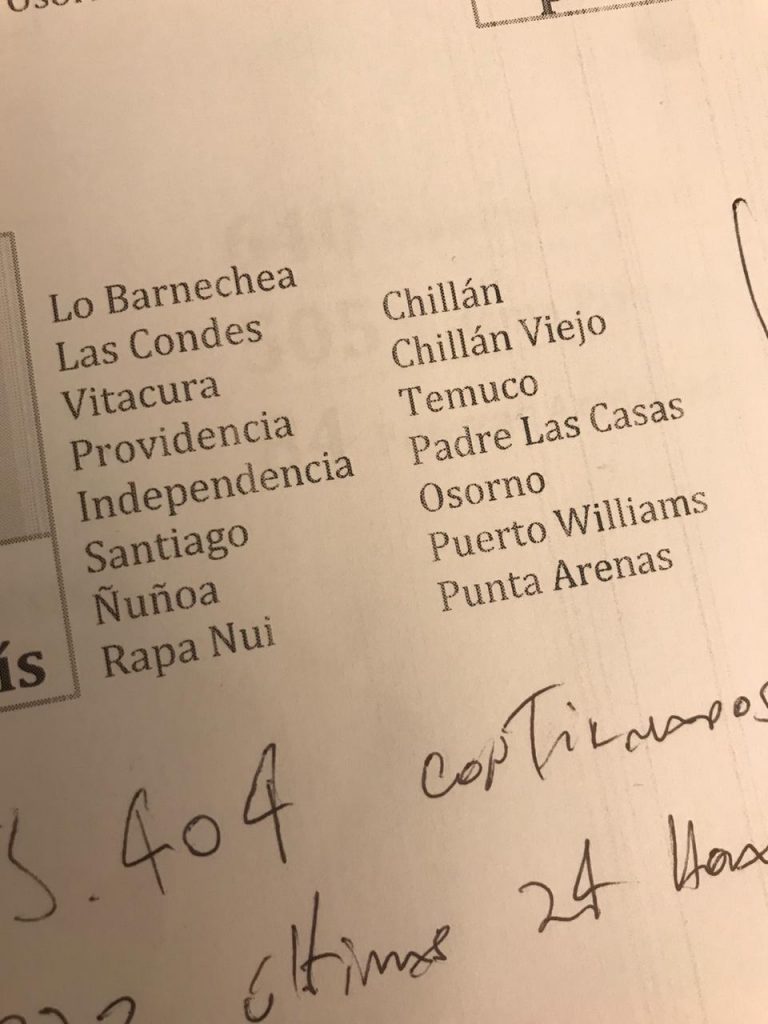 Lo Barnechea
Las Condes
Vitacura
Providencia
Independencia
Santiago
Ñuñoa
Rapa Nui
Chillán
Chillán Viejo
Temuco
Padre Las Casas
Osorno
Puerto Williams
Punta Arenas
ís
.404 confirmados
últimas 24 Hor